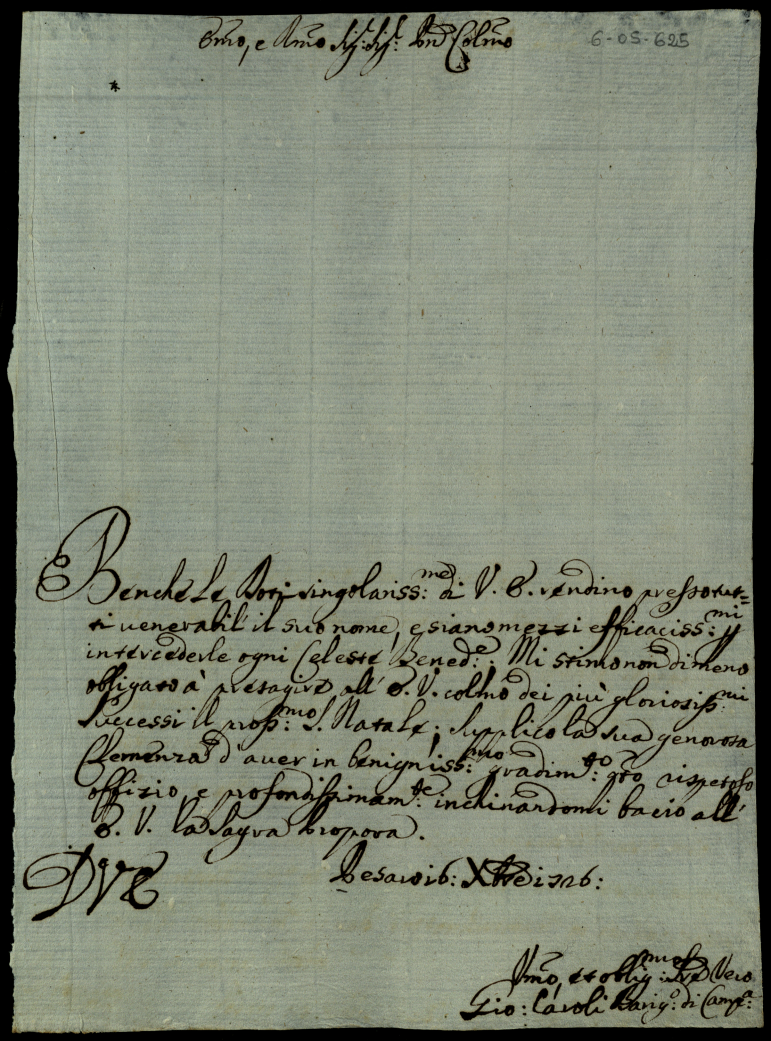 Emo, e Rmo Sig: Sig: Pne Colmo
6-05-625
Benche Le Doti singolariss:me di V. E. rendino presso tut=
ti venerabil' il suo nome, e siano mezzi efficaciss:mi p
intercederle ogni Celeste Bened:e; Mi stimo non dimeno
obligato à presagire all' E. V. colmo dei più gloriosiss:mi
successi il pross:mo S. Natale; Supplico la sua generosa
Clemenza d' aver in benigniss:mo gradim:to qto rispetoso
offizio, e profondissimam:te inchinandomi bacio all'
E. V. la Sagra Porpora.
D V E
Pesaro 16: Xbre 1726:
Umo, et oblig:mo Sre Vero
Gio: Caroli Barig:o di Camp:a